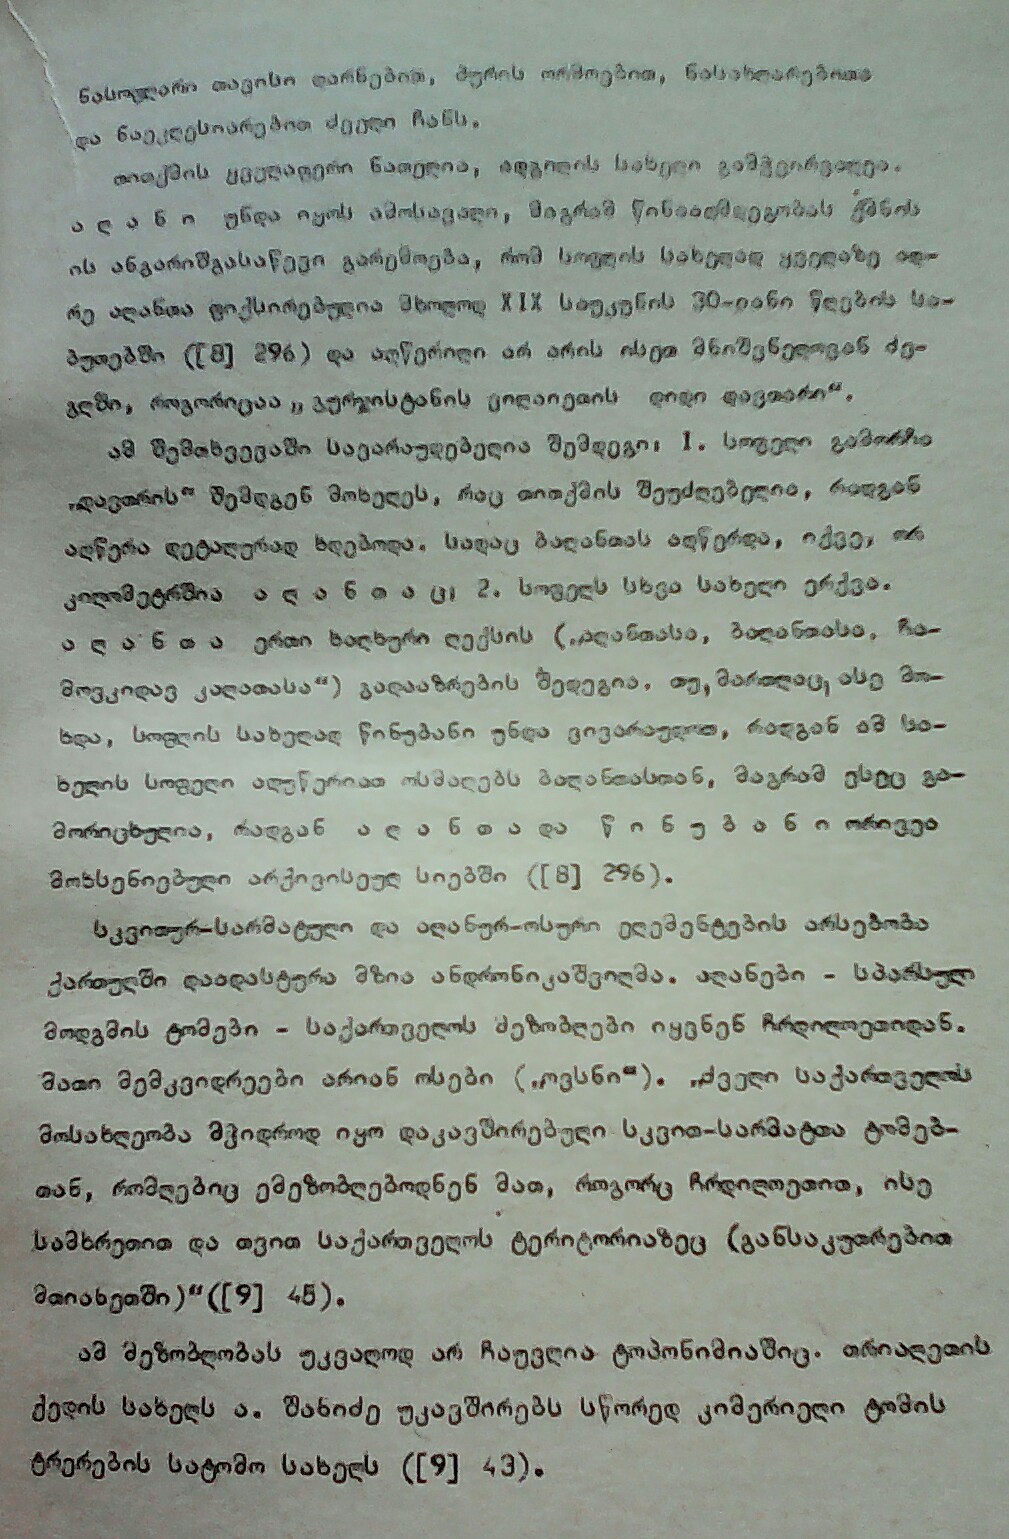 ნასოფლარი თავისი დარნებით, პურის ორმოებით, ნასახლარებითა
და ნაეკლესიარებით ძველი ჩანს.
თითქმის ყველაფერი ნათელია, ადგილის სახელი გამჭვირვალეა.
ა ლ ა ნ ი უნდა იყოს ამოსავალი, მაგრამ წინააღმდეგობას ქმნის
ის ანგარიშგასაწევი გარემოება, რომ სოფლის სახელად ყველაზე ად-
რე ალანთა ფიქსირებულია მხოლოდ XIX საუკუნის 30-იანი წლების სა-
ბუთებში ([8] 296) და აღწერილი არ არის ისეთ მნიშვნელოვან ძე-
გლში, როგორიცაა „გურჯისტანის ვილაიეთის დიდი დავთარი“.
ამ შემთხვევაში სავარაუდებელია შემდეგი: 1. სოფელი გამორჩა
„დავთრის“ შემდგენ მოხელეს, რაც თითქმის შეუძლებელია, რადგან
აღწერა დეტალურად ხდებოდა. სადაც ბალანთას აღწერდა, იქვე, ორ
კილომეტრშია ა ლ ა ნ თ ა ც; 2. სოფელს სხვა სახელი ერქვა.
ა ლ ა ნ თ ა ერთი ხალხური ლექსის („ალანთასა, ბალანთასა, ჩა-
მოვკიდავ კალათასა“) გადააზრების შედეგია. თუ, მართლაც, ასე მო-
ხდა, სოფლის სახელად წინუბანი უნდა ვივარაუდოთ, რადგან ამ სა-
ხელის სოფელი აღუწერიათ ოსმალებს ბალანთასთან, მაგრამ ესეც გა-
მორიცხულია, რადგან ა ლ ა ნ თ ა და წ ი ნ უ ბ ა ნ ი ორივეა
მოხსენიებული არქივისეულ სიებში ([8] 296).
სკვითურ-სარმატული და ალანურ-ოსური ელემენტების არსებობა
ქართულში დაადასტურა მზია ანდრონიკაშვილმა. ალანები - სპარსულ
მოდგმის ტომები - საქართველოს მეზობლები იყვნენ ჩრდილოეთიდან.
მათი მემკვიდრეები არიან ოსები („ოვსნი“). „ძველი საქართველოს
მოსახლეობა მჭიდროდ იყო დაკავშირებული სკვით-სარმატთა ტომებ-
თან, რომლებიც ემეზობლებოდნენ მათ, როგორც ჩრდილოეთით, ისე
სამხრეთით და თვით საქართველოს ტერიტორიაზეც (განსაკუთრებით
მთიახეთში)“([9] 45).
ამ მეზობლობას უკვალოდ არ ჩაუვლია ტოპონიმიაშიც. თრიალეთის
ქედის სახელს ა. შანიძე უკავშირებს სწორედ კიმერიელი ტომის
ტრერების სატომო სახელს ([9] 43).